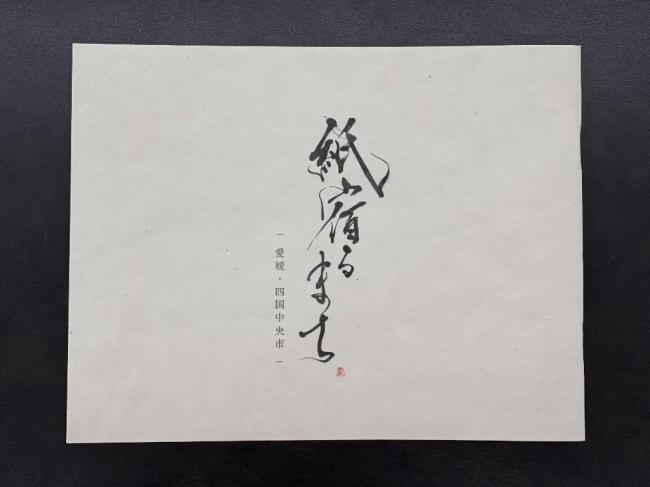 紙宿るまち
―愛媛・四国中央市―